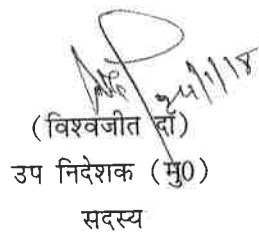 24/1/18
(विश्वजीत दाॅ)
उप निदेशक (मु0)
सदस्य